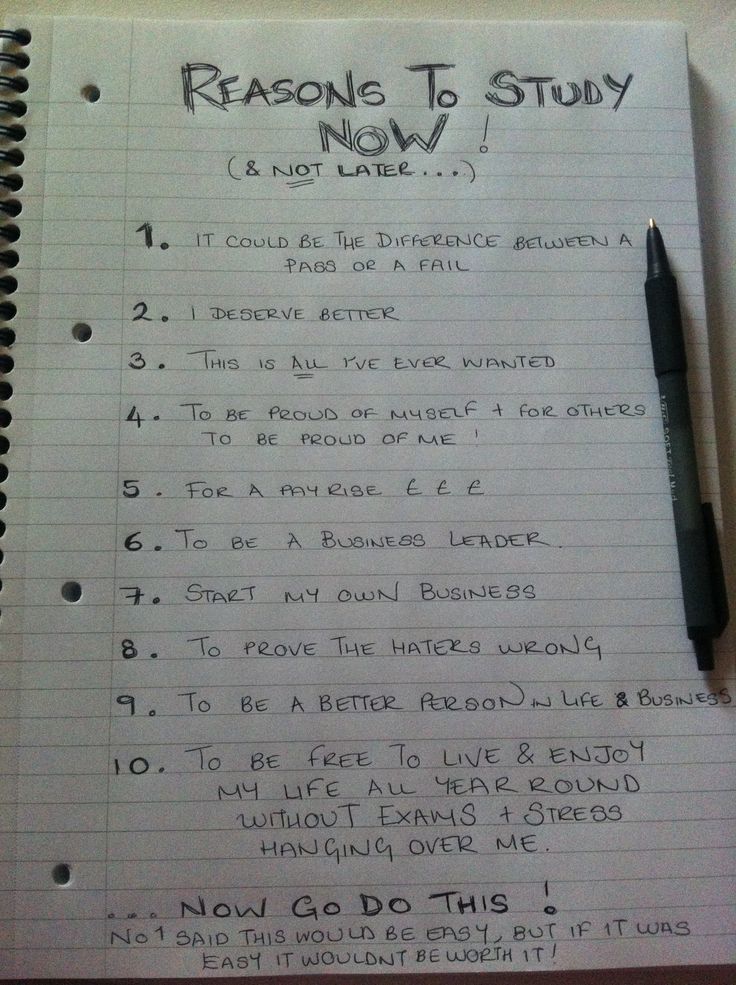 REASONS TO STUDY
NOW!
(& NOT LATER....)
1. IT COULD BE THE DIFFERENCE BETWEEN A
PASS OR A FAIL
2. I DESERVE BETTER
3. THIS IS ALL I'VE EVER WANTED
4. TO BE PROUD OF MYSELF + FOR OTHERS
TO BE PROUD OF ME!
5. FOR A PAYRISE £ £ £
6. TO BE A BUSINESS LEADER.
7. START MY OWN BUSINESS
8. TO PROVE THE HATERS WRONG
9. TO BE A BETTER PERSON IN LIFE & BUSINESS
10. TO BE FREE TO LIVE & ENJOY
MY LIFE ALL YEAR ROUND
WITHOUT EXAMS + STRESS
HANGING OVER ME.
... NOW GO DO THIS!
NO1 SAID THIS WOULD BE EASY, BUT IF IT WAS
EASY IT WOULDNT BE WORTH IT!